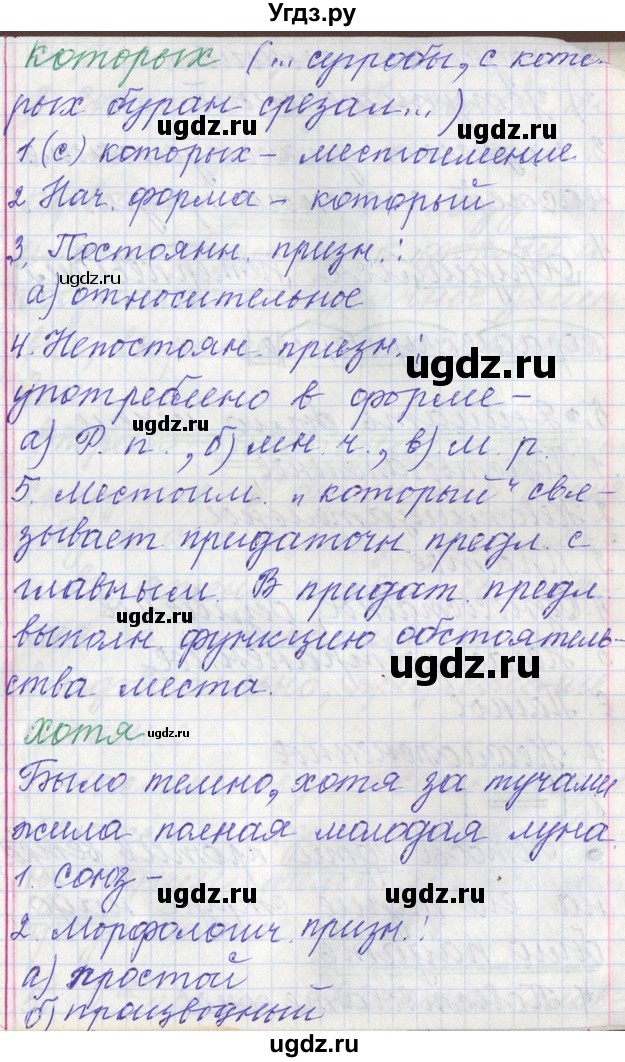 Угдз.ру
которых (... сугробы, с кото-
рых буран срезал...)
1. (с) которых – местоимение
2. Нач. форма – который
3. Постоянн. призн.:
а) относительное
4. Непостоян. призн.:
употреблено в форме –
а) Р. п., б) мн. ч., в) м. р.
5. Местоим. „который“ свя-
зывает придаточн предл. с
главным. В придат. предл.
выполн функцию обстоятель-
ства места.
хотя
Было темно, хотя за тучами
жила полная молодая луна.
1. союз –
2. Морфологич. призн.:
а) простой
б) производный